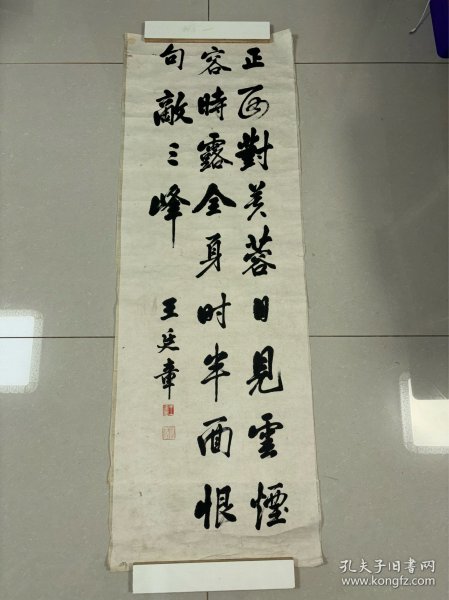 正面對芙蓉日見雲煙
容時露全身时半面恨
句敵三峰
王廷章
孔夫子旧书网
www.kongfz.com